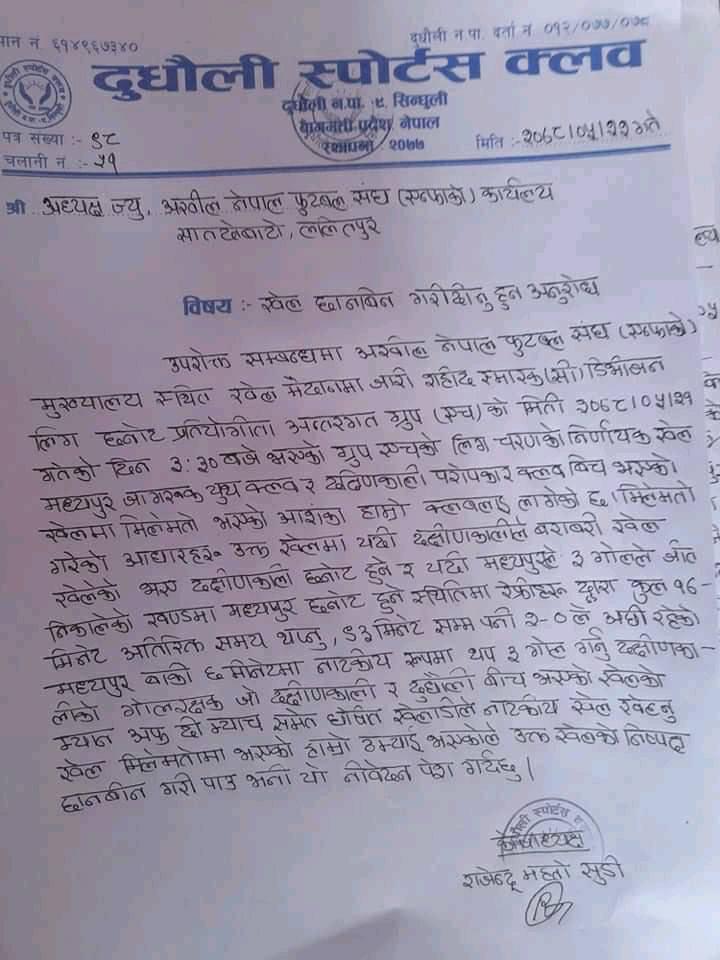 पान नं ६१४९६७३४०
दुधौली न.पा. दर्ता नं ०१२/०७७/०७८
दुधौली स्पोर्टस क्लव
दुधौली न.पा. ९, सिन्धुली
वागमती प्रदेश, नेपाल
स्थापना २०७७
पत्र संख्या :- ९८
चलानी नं :- ५१
मिति :- २०७८/०५/२२ गते
श्री अध्यक्ष ज्यु, अखील नेपाल फुटबल संघ (एन्फाको) कार्यलय
सातदोबाटो, ललितपुर
विषय :- खेल छानबिन गरीदीनु हुन अनुरोध
उपरोक्त सम्बन्धमा अखील नेपाल फुटबल संघ (एन्फाको)
मुख्यालय स्थित खेल मैदानमा जारी शहीद स्मारक (सी) डिभीजन
लिग छनोट प्रतियोगीता अन्तरगत ग्रुप (एच) को मिती २०७८/०५/२१
गतेको दिन ३:३० बजे भएको ग्रुप एचको लिग चरणको निर्णायक खेल
मध्यपुर जागरूक युथ क्लव र दक्षिणकाली परोपकार क्लव बिच भएको
खेलमा मिलेमतो भएको आशंका हाम्रो क्लवलाई लागेको छ। मिलेमतो
गरेको आधारहरू उक्त खेलमा यदी दक्षीणकालीले बराबरी खेल
खेलेको भए दक्षीणकाली छनोट हुने र यदी मध्यपुरले ३ गोलले जीत
निकालेको खण्डमा मध्यपुर छनोट हुने स्थितिमा रेफ्रीहरू द्वारा कुल १६-
मिनेट अतिरिक्त समय थप्नु, ९३ मिनेट सम्म पनी २-० ले अघी रहेको
मध्यपुर बाकी ६ मीनेटमा नाटकीय रूपमा थप ३ गोल गर्नु दक्षीणका-
लीको गोलरक्षक जो दक्षीणकाली र दुधौली बीच भएको खेलको
म्यान अफ दी म्याच समेत घोषित खेलाडीले नाटकीय खेल खेल्नु
खेल मिलेमतोमा भएको हाम्रो ठम्याई भएकाले उक्त खेलको निष्पक्ष
छानबीन गरी पाउ भनी यो नीवेदन पेश गर्दछु।
राजेन्द्र महतो सुडी